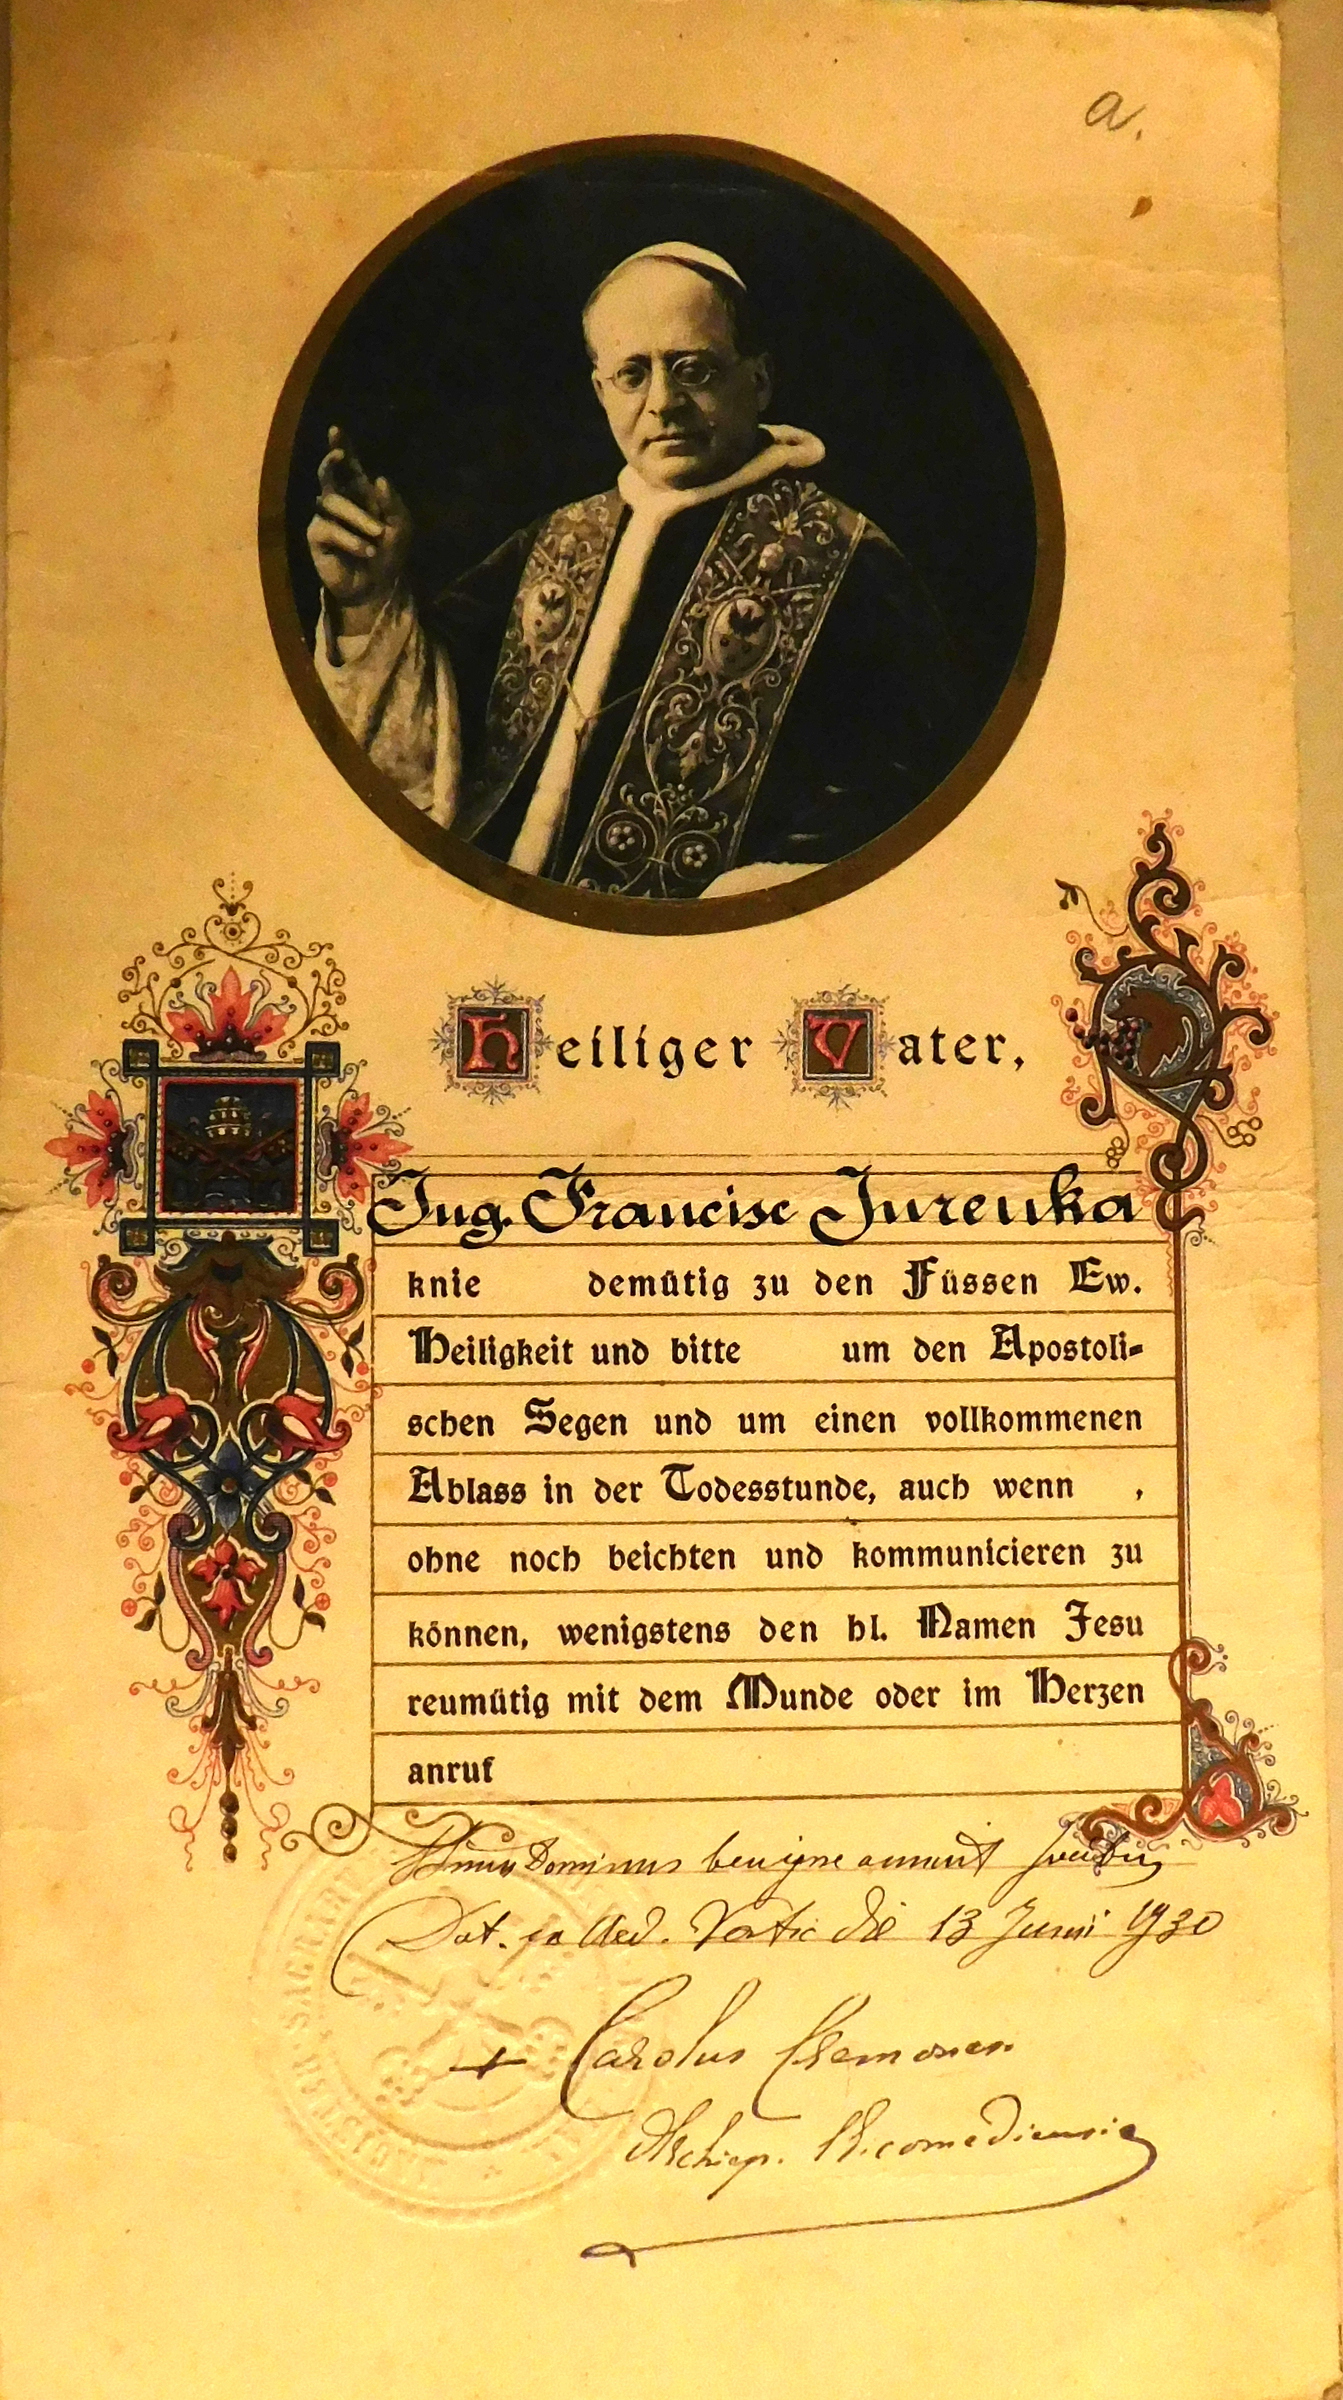 a.
Heiliger Vater,
Ing. Francisc Jurenka
knie demütig zu den Füssen Ew.
Heiligkeit und bitte um den Apostoli-
schen Segen und um einen vollkommenen
Ablass in der Todesstunde, auch wenn ,
ohne noch beichten und kommunicieren zu
können, wenigstens den hl. Namen Jesu
reumütig mit dem Munde oder im Herzen
anruf
Dominus benigne annuit
Dat. ex Aed. Vatic die 13 Junii 1930
+ Carolus Cremonesi
Archiep. Nicomediensis